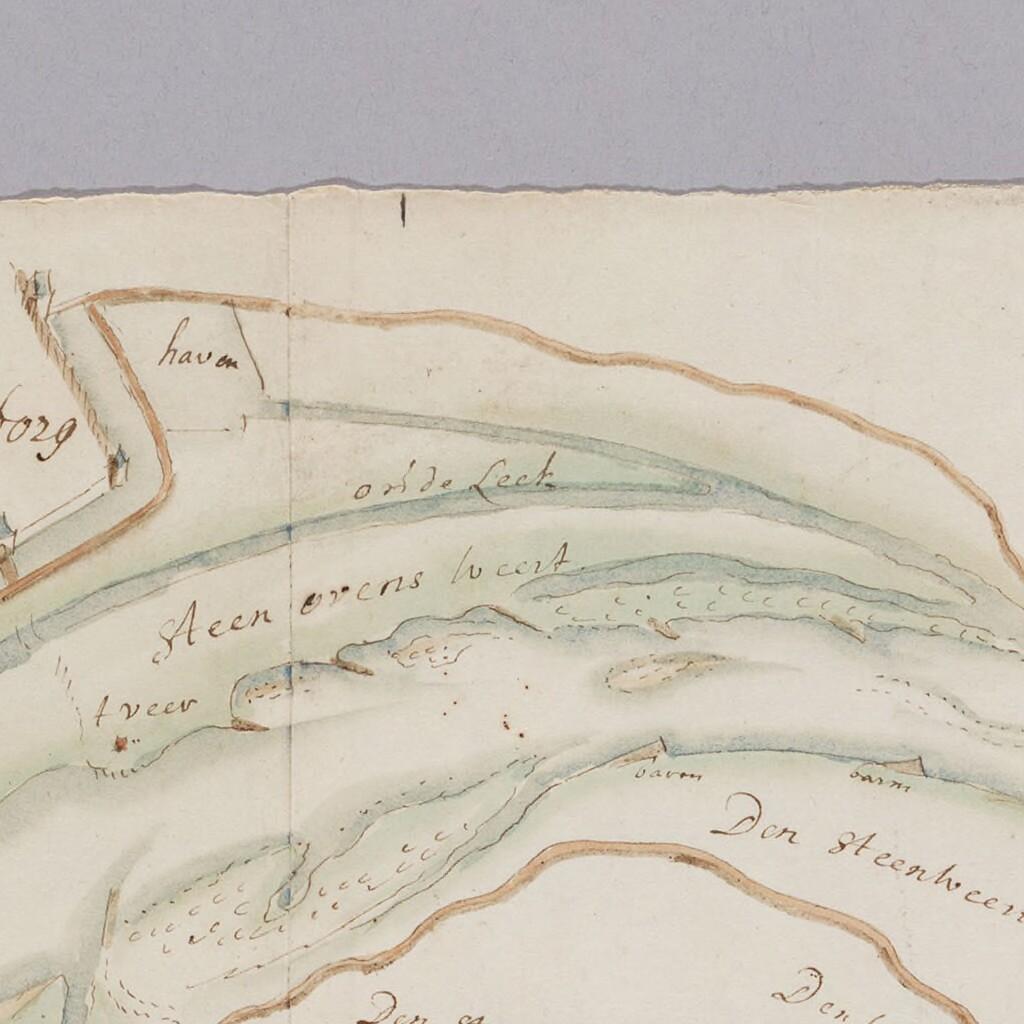 haven
borg
oude Leck
steen ovens weert
t veer
baren
barm
Den steenweer
Den st
Den